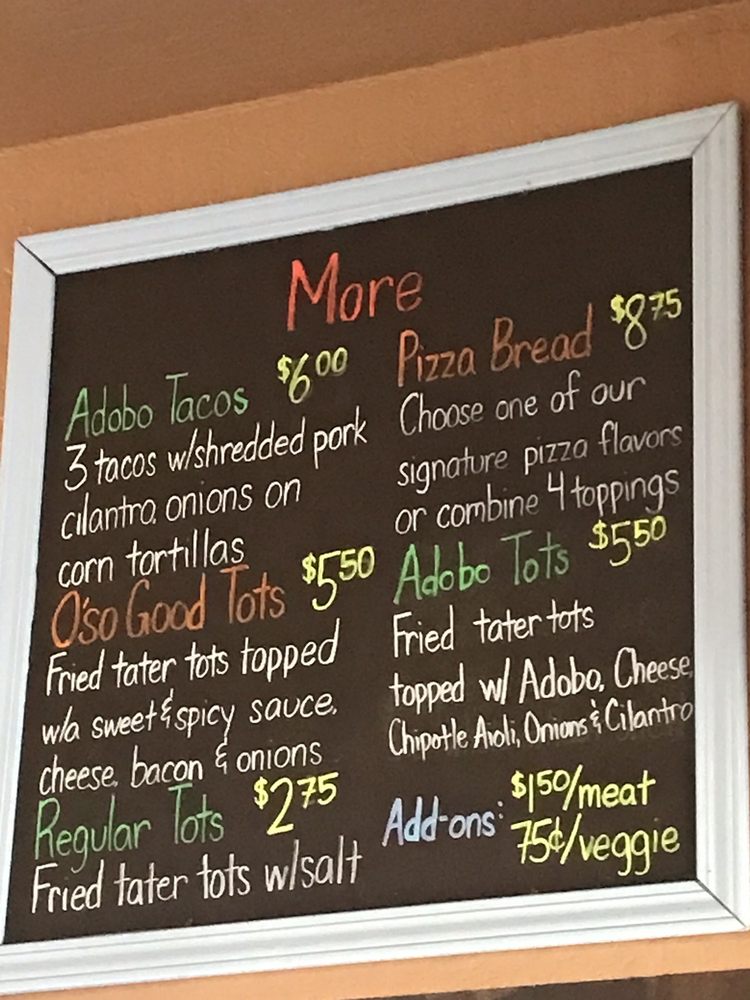 More
Adobo Tacos $6.00
3 tacos w/shredded pork
cilantro, onions on
corn tortillas
O'so Good Tots $5.50
Fried tater tots topped
w/a sweet & spicy sauce,
cheese, bacon & onions
Regular Tots $2.75
Fried tater tots w/salt
Pizza Bread $8.75
Choose one of our
signature pizza flavors
or combine 4 toppings
Adobo Tots $5.50
Fried tater tots
topped w/ Adobo, Cheese,
Chipotle Aioli, Onions & Cilantro
Add-ons: $1.50/meat
75¢/veggie